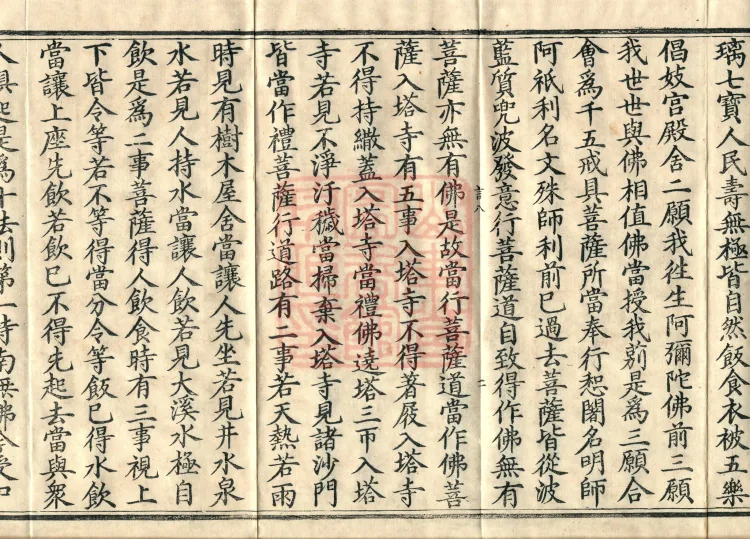 璃七寶人民壽無極皆自然飯食衣被五樂
倡妓宮殿舍二願我徃生阿彌陀佛前三願
我世世與佛相值佛當授我莂是爲三願合
會爲千五戒具菩薩所當奉行恕闍名明師
阿祇利名文殊師利前巳過去菩薩皆從波
藍質兜波發意行菩薩道自致得作佛無有
言八 二
菩薩亦無有佛是故當行菩薩道當作佛菩
薩入塔寺有五事入塔寺不得著屐入塔寺
不得持繖蓋入塔寺當禮佛遶塔三帀入塔
寺若見不淨汙穢當掃棄入塔寺見諸沙門
皆當作禮菩薩行道路有二事若天熱若雨
時見有樹木屋舍當讓人先坐若見井水泉
水若見人持水當讓人飲若見大溪水極自
飲是爲二事菩薩得人飲食時有三事視上
下皆令等若不等得當分令等飯巳得水飲
當讓上座先飲若飲巳不得先起去當與衆
人俱起是爲十法則第一持南無佛